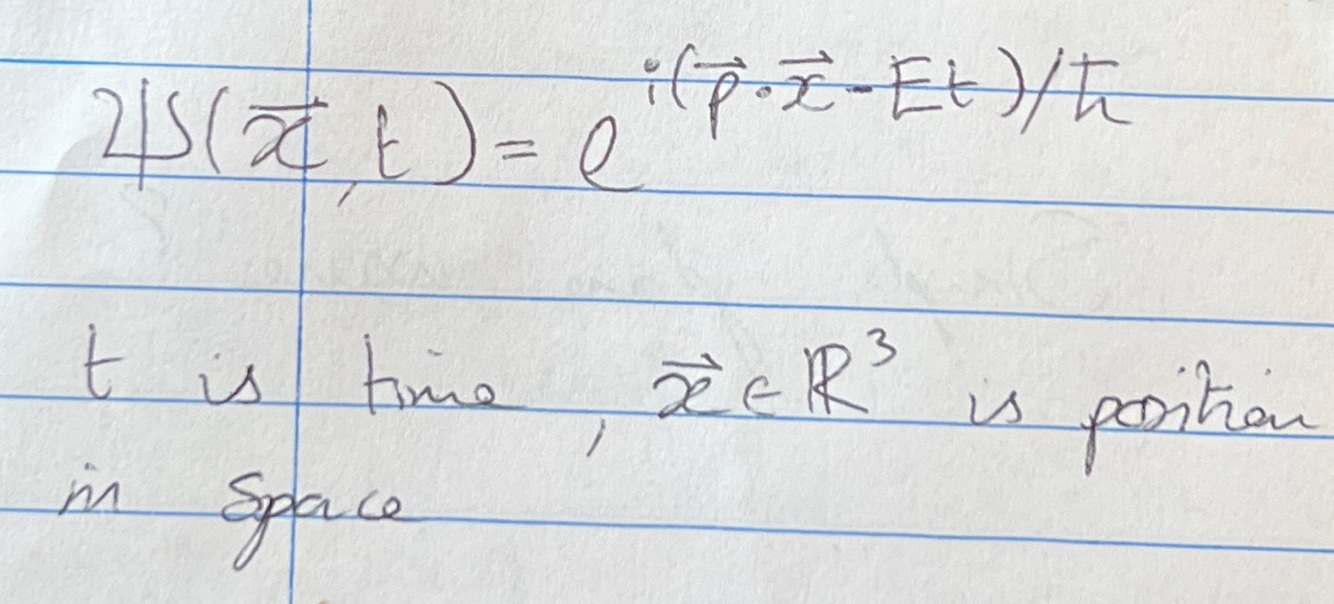 ψ(x⃗, t) = e^{i(p⃗·x⃗ - Et)/ħ}
t is time, x⃗ ∈ ℝ³ is position
in space